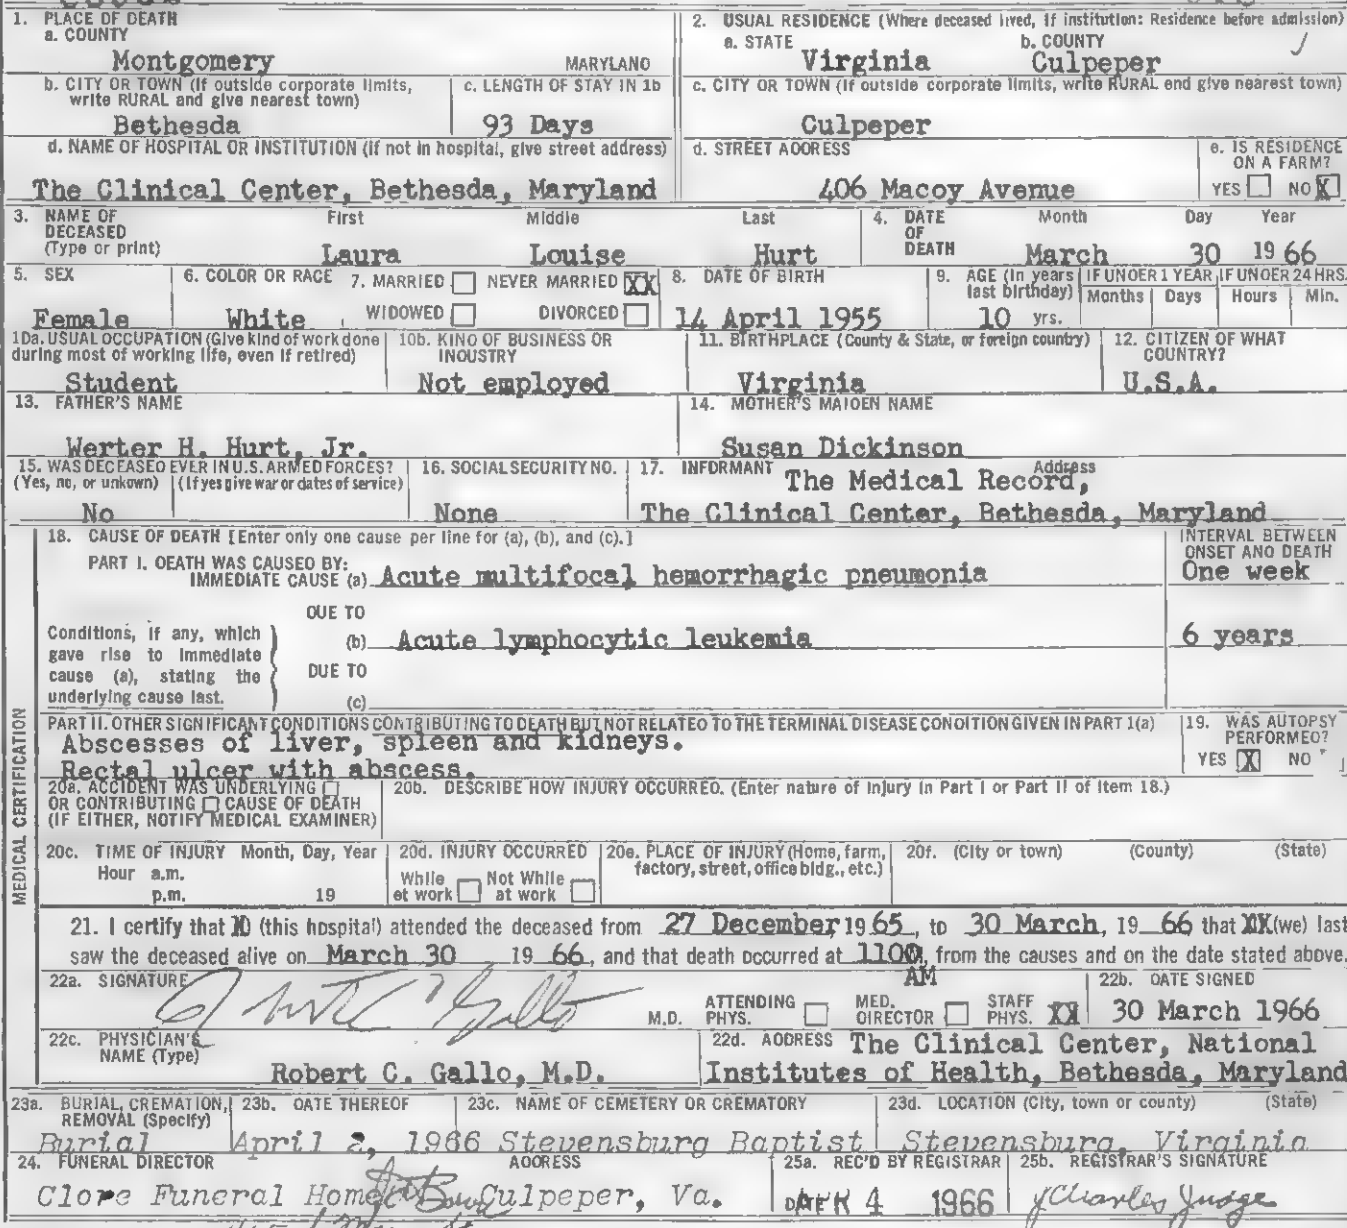 1. PLACE OF DEATH
a. COUNTY
Montgomery MARYLAND
2. USUAL RESIDENCE (Where deceased lived, If institution: Residence before admission)
a. STATE b. COUNTY
Virginia Culpeper
b. CITY OR TOWN (If outside corporate limits, write RURAL and give nearest town)
Bethesda
c. LENGTH OF STAY IN 1b
93 Days
c. CITY OR TOWN (If outside corporate limits, write RURAL and give nearest town)
Culpeper
d. NAME OF HOSPITAL OR INSTITUTION (If not in hospital, give street address)
The Clinical Center, Bethesda, Maryland
d. STREET ADDRESS
406 Macoy Avenue
e. IS RESIDENCE ON A FARM?
YES NO X
3. NAME OF DECEASED (Type or print)
First Middle Last
Laura Louise Hurt
4. DATE OF DEATH
Month Day Year
March 30 1966
5. SEX
Female
6. COLOR OR RACE
White
7. MARRIED NEVER MARRIED XX
WIDOWED DIVORCED
8. DATE OF BIRTH
14 April 1955
9. AGE (In years last birthday)
10 yrs.
IF UNDER 1 YEAR IF UNDER 24 HRS.
Months Days Hours Min.
10a. USUAL OCCUPATION (Give kind of work done during most of working life, even if retired)
Student
10b. KIND OF BUSINESS OR INDUSTRY
Not employed
11. BIRTHPLACE (County & State, or foreign country)
Virginia
12. CITIZEN OF WHAT COUNTRY?
U.S.A.
13. FATHER'S NAME
Werter H. Hurt, Jr.
14. MOTHER'S MAIDEN NAME
Susan Dickinson
15. WAS DECEASED EVER IN U.S. ARMED FORCES?
(Yes, no, or unkown) (If yes give war or dates of service)
No
16. SOCIAL SECURITY NO.
None
17. INFORMANT Address
The Medical Record,
The Clinical Center, Bethesda, Maryland
MEDICAL CERTIFICATION
18. CAUSE OF DEATH [Enter only one cause per line for (a), (b), and (c).]
INTERVAL BETWEEN ONSET AND DEATH
PART I. DEATH WAS CAUSED BY:
IMMEDIATE CAUSE (a) Acute multifocal hemorrhagic pneumonia One week
DUE TO
Conditions, if any, which gave rise to immediate cause (a), stating the underlying cause last.
(b) Acute lymphocytic leukemia 6 years
DUE TO
(c)
PART II. OTHER SIGNIFICANT CONDITIONS CONTRIBUTING TO DEATH BUT NOT RELATED TO THE TERMINAL DISEASE CONDITION GIVEN IN PART 1(a)
Abscesses of liver, spleen and kidneys.
Rectal ulcer with abscess.
19. WAS AUTOPSY PERFORMED?
YES X NO
20a. ACCIDENT WAS UNDERLYING
OR CONTRIBUTING CAUSE OF DEATH
(IF EITHER, NOTIFY MEDICAL EXAMINER)
20b. DESCRIBE HOW INJURY OCCURRED. (Enter nature of injury in Part I or Part II of item 18.)
20c. TIME OF INJURY Month, Day, Year
Hour a.m.
p.m. 19
20d. INJURY OCCURRED
While at work Not While at work
20e. PLACE OF INJURY (Home, farm, factory, street, office bldg., etc.)
20f. (City or town) (County) (State)
21. I certify that (this hospital) attended the deceased from 27 December, 1965, to 30 March, 19 66 that XX(we) last
saw the deceased alive on March 30 19 66, and that death occurred at 1100, from the causes and on the date stated above.
AM
22a. SIGNATURE
M.D.
ATTENDING PHYS. MED. DIRECTOR STAFF PHYS. XX
22b. DATE SIGNED
30 March 1966
22c. PHYSICIAN'S NAME (Type)
Robert C. Gallo, M.D.
22d. ADDRESS The Clinical Center, National
Institutes of Health, Bethesda, Maryland
23a. BURIAL, CREMATION, REMOVAL (Specify)
Burial
23b. DATE THEREOF
April 2, 1966
23c. NAME OF CEMETERY OR CREMATORY
Stevensburg Baptist
23d. LOCATION (City, town or county) (State)
Stevensburg, Virginia
24. FUNERAL DIRECTOR ADDRESS
Clore Funeral Home Culpeper, Va.
25a. REC'D BY REGISTRAR
DATE APR 4 1966
25b. REGISTRAR'S SIGNATURE
Charles Judge